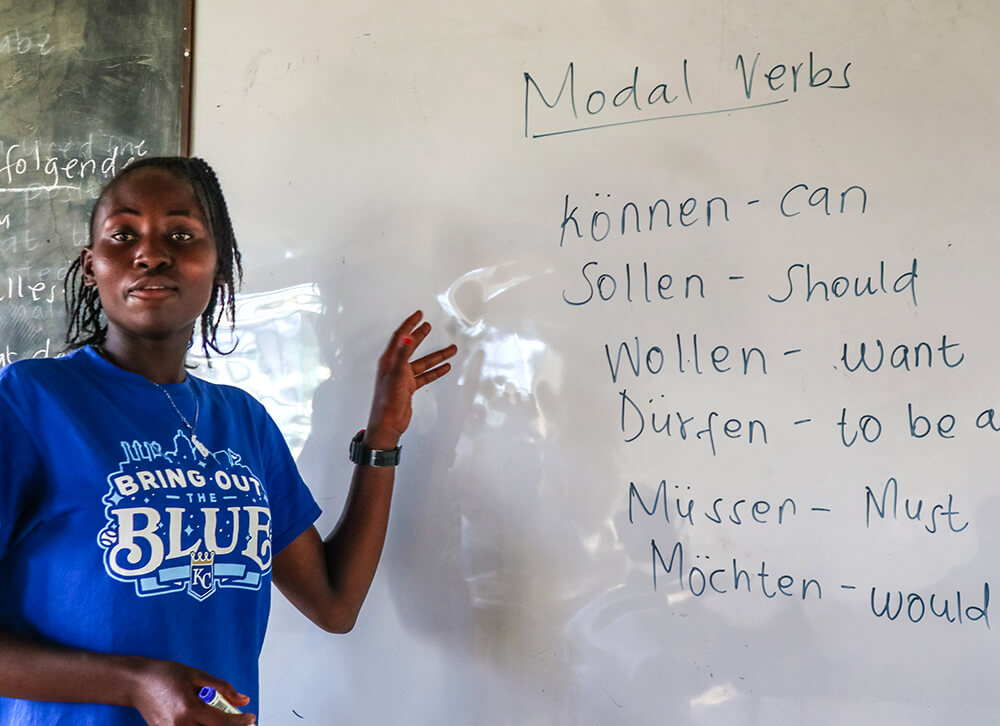 Modal Verbs
können - can
Sollen - Should
Wollen - want
Dürfen - to be a
Müssen - Must
Möchten - would
folgende
BRING OUT
THE
BLUE
KC